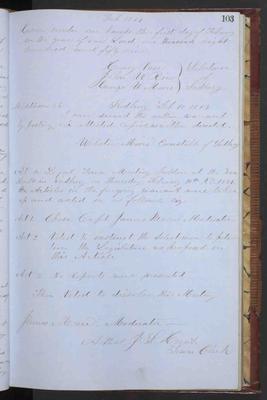 Feb 1859
103
Given under our hands the first day of February
in the year of our Lord one thousand eight
hundred and fifty nine
George
Selectmen
of
Sudbury
Middlesex ss. Sudbury Feb 10 1859
I have served the within warrant
by posting an attested copy as within directed.
Webster Moore Constable of Sudbury
At a Legal Town Meeting holden at the
in Sudbury on Thursday February 10 A.D. 1859
the Articles in the foregoing warrant were taken
up and acted on as follows
Art 1. Chose Capt James Moore Moderator
Art 2 Voted to instruct the Selectmen to
the Legislature as proposed in
this Article
Art 3 No Reports were presented
Then Voted to dissolve this Meeting
James Moore Moderator
Attest J. S. Hunt
Town Clerk